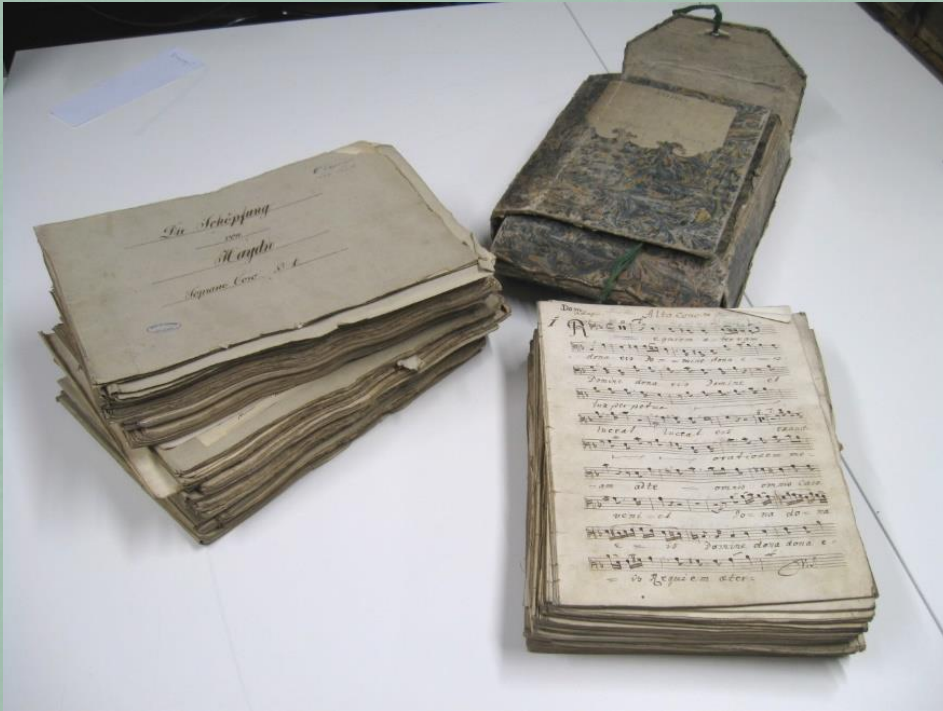 Die Schöpfung
von
Haydn
Soprano Coro
Alto Conc
equiem
dona eis Do-mine dona e-is
Domine dona eis Domine et
lux perpetua
luceat luceat eis
orationem me-
am ad te omnis omnis caro
veni-et Do-na do-na
e-is Domine dona dona e-
is Requiem æter: